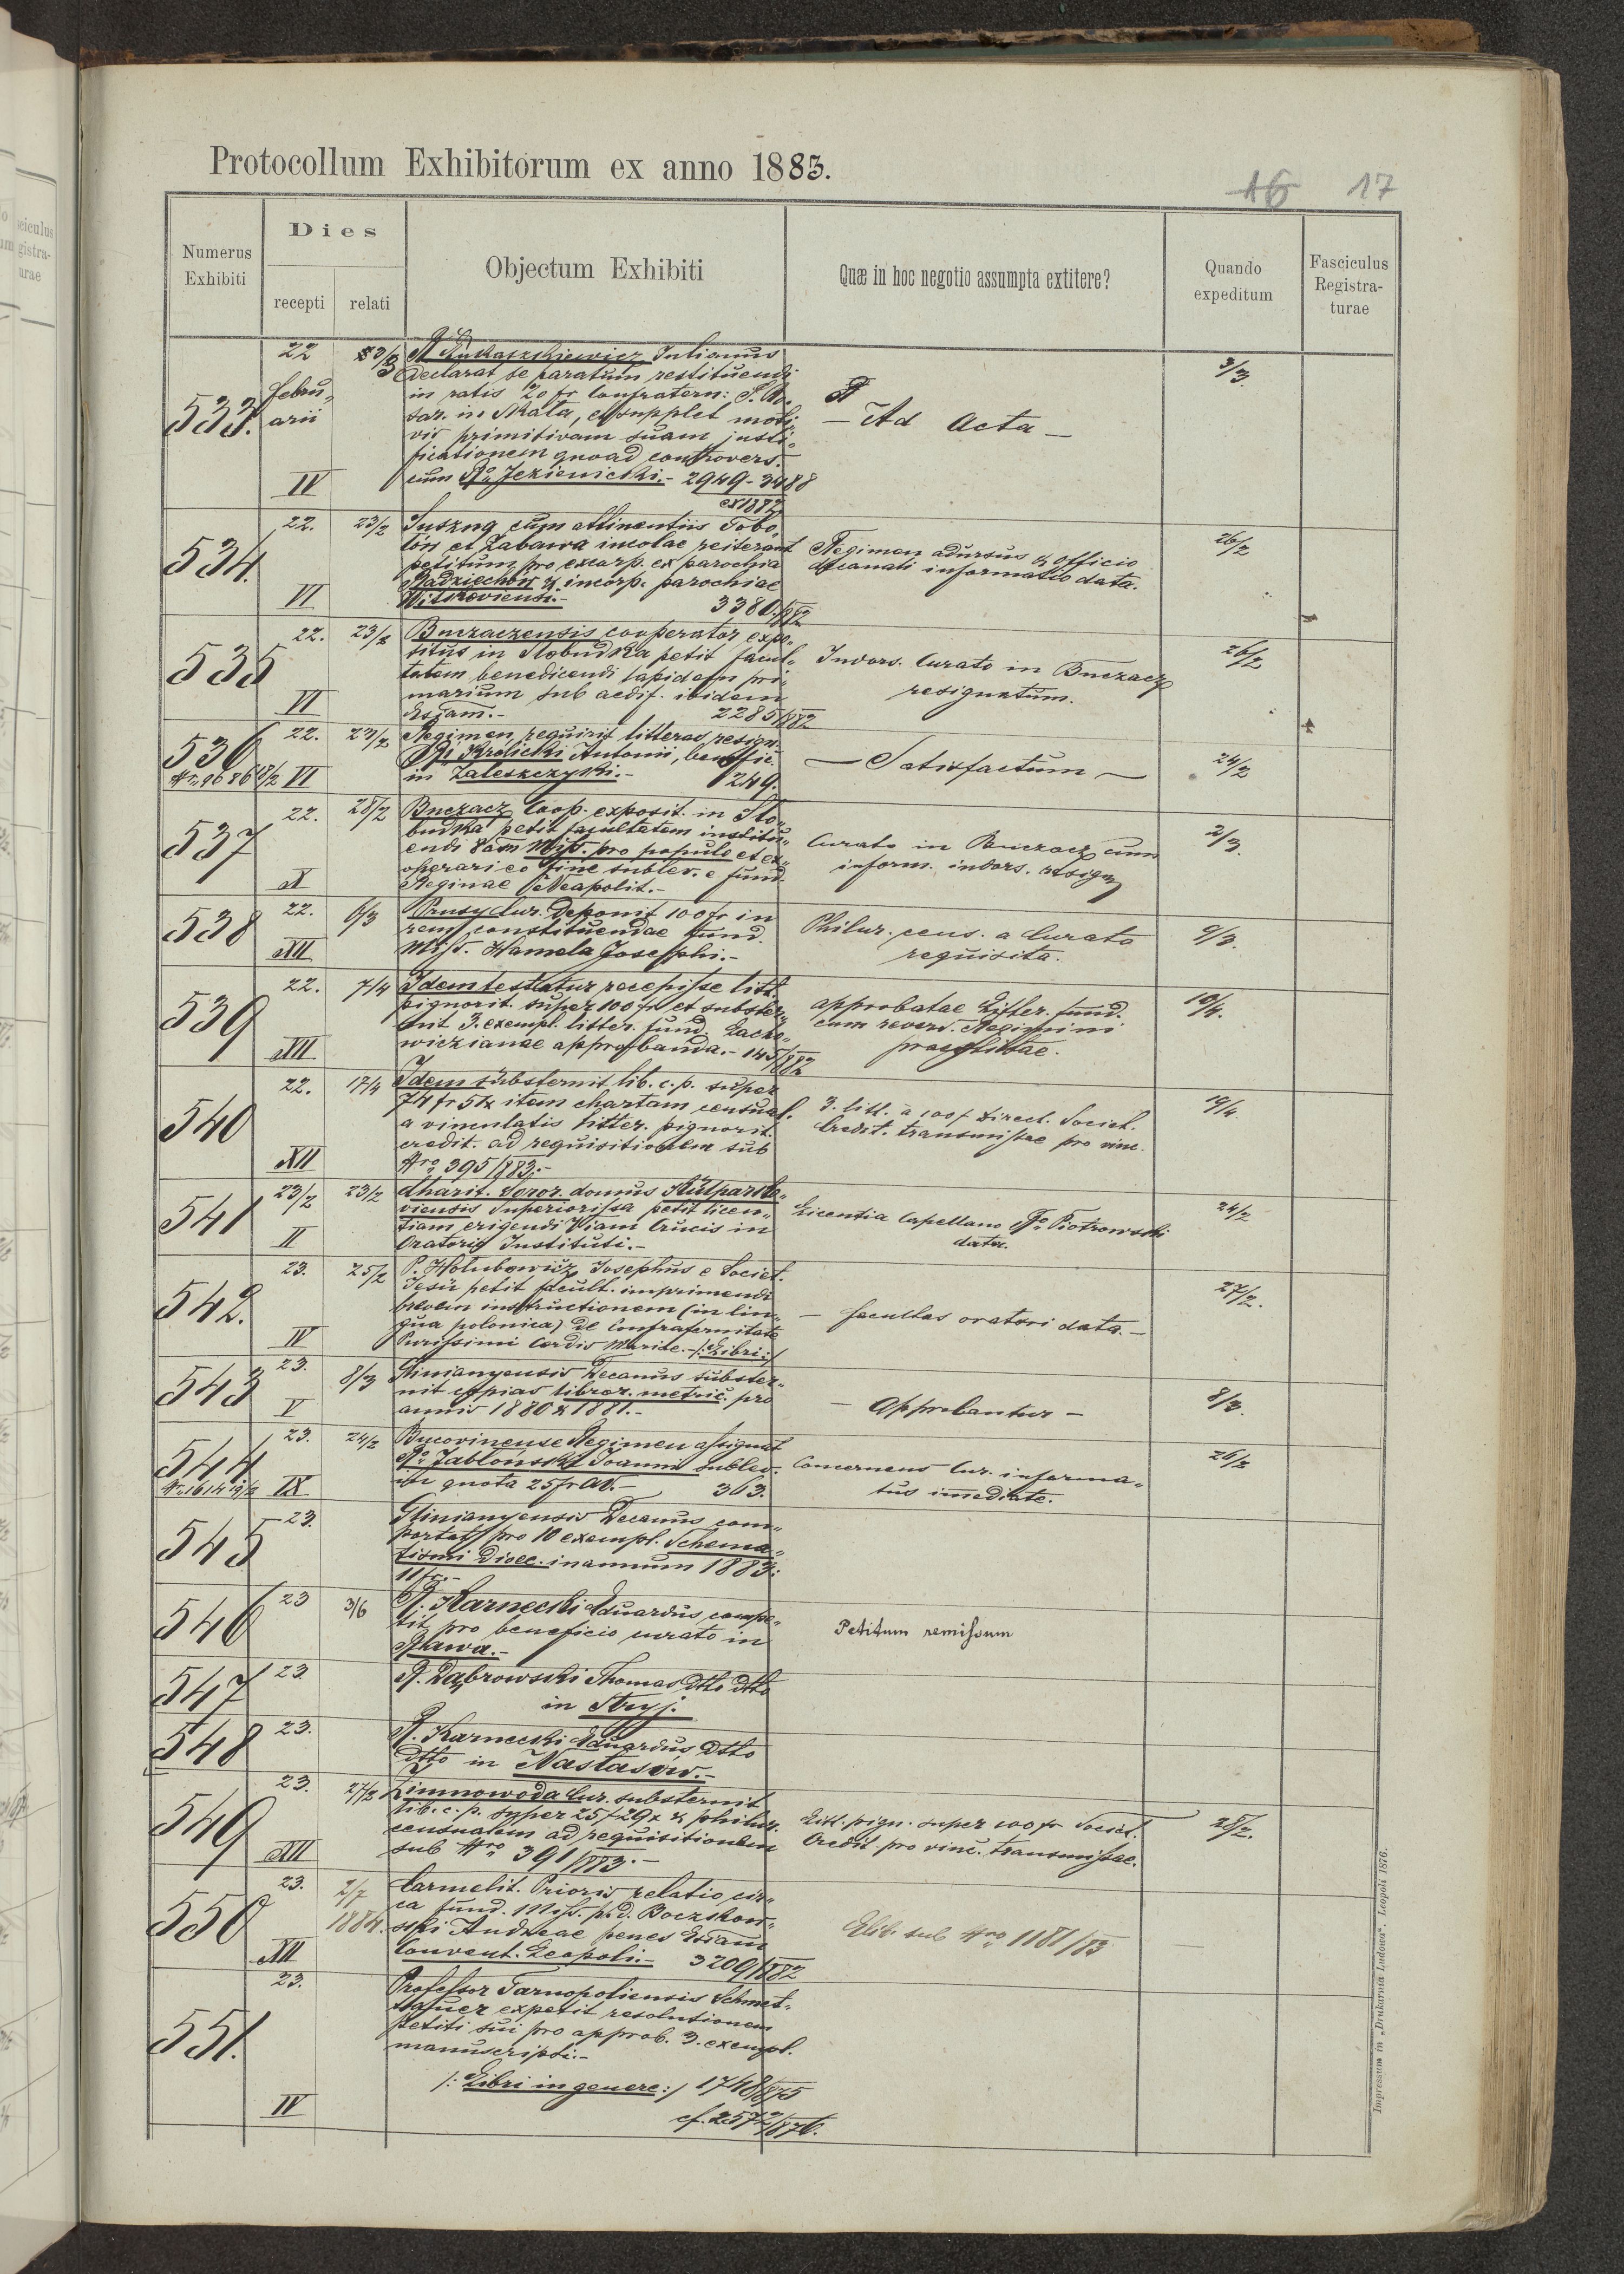 Protocollum Exhibitorum ex anno 1883.
16 17
Numerus Exhibiti
Dies
recepti
relati
Objectum Exhibiti
Quæ in hoc negotio assumpta extitere?
Quando expeditum
Fasciculus Registra-
turae
533.
22
febru„
arii
IV
3/3
R. Łukaszkiewicz Julianus
declarat se paratum restituendi
in ratis 20 fr Confratern: S. Ro„
sar. in Skala, et supplet moti„
vis primitivam suam justi„
ficationem quoad controvers.
cum Ro. Jezienicki.- 2949-3488
ex 1882
— Ad Acta —
3/3.
534.
22.
VI
23/2
Suszno cum attinentiis Tobo„
tów et Zabawa incolae reiterant
petitum pro excorp. ex parochia
Radziechów & incorp. parochiae
Witkoviensi.-
3380/882
Regimen adursus & officio
decanali informatio data.
26/2
535
22.
VI
23/2
Buczaczensis cooperator expo„
situs in Slobudka petit facul„
tatem benedicendi lapidem pri„
marium sub aedif. ibidem
Eccliam.-
2285/882
Indors. Curato in Buczacz
resignatum.
26/2
536
22.
VI
23/2
Regimen requirit litteras resign.
Ri Królicki Antonii, benefic.
in Zaleszczyki.-
249.
— Satisfactum —
24/2
537
22.
X
28/2
Buczacz Coop. exposit. in Slo„
budka petit facultatem institu„
endi 8am Miss. pro populo et ex„
operari eo fine sublev. e fund.
Reginae Neapolit.-
Curato in Buczacz cum
inform. indors. resign
2/3.
538
22.
XII
6/3
Prusy Cur. deponit 100 fr in
rem constituendae fund.
Miss. Hamela Josephi.-
Philur. cens. a Curato
requisita.
9/3.
539
22.
XII
7/4
Idem testatur recepisse litt.
pignorit. super 100 fr et subster„
nit 3. exempl. litter. fund. Lacho„
wiczianae approbanda.- 145/882
approbatae Litter. fund.
cum revers. Regimini
praestitae.
10/4.
540
22.
XII
17/4
Idem substernit lib. c. p. super
74 fr 51x item chartam censual.
a vinculatis litter. pignorit.
credit. ad requisitionem sub
Nro 395/883.-
3. litt. a 100 f direct. Societ.
Credit. transmissae pro vinc.
19/4
541
23/2
II
23/2
Charit. Soror. domus Kulparko„
viensis Superiorissa petit licen„
tiam erigendi Viam Crucis in
Oratorio Instituti.-
Licentia Capellano Ro Piotrowski
data.
24/2
542.
23.
IV
25/2
P. Hołubowicz Josephus e Societ.
Jesu petit facult. imprimendi
brevem instructionem (in lin„
gua polonica) de Confraternitate
Purissimi Cordis Mariae.- /:Libri:/
— facultas oratori data.—
27/2.
543
23.
V
8/3
Glinianyensis Decanus subster„
nit copias libror. metric. pro
annis 1880 & 1881.-
— Approbantur —
8/3.
544
23.
IX
24/2
Bucovinense Regimen assignat
Ro. Jabłonski Joanni sublev.
in quota 25 fr AV.-
363.
Concernens Cur. informa„
tus immediate.
26/2
545
23.
Glinianyensis Decanus com„
portat pro 10 exempl. Schema„
tismi Dioec. in annum 1883:
11 fr.-
546
23
3/6
R. Karnecki Eduardus compe„
tit pro beneficio curato in
Rława.-
Petitum remissum
547
23.
R. Dąbrowski Thomas dtto dtto
in Stryj.
548
23.
R. Karnecki Eduardus dtto
dtto in Nastasow.-
549
23.
XII
27/2
Zimnowoda Cur. substernit
lib. c. p. super 25 f 29x & philur.
censualem ad requisitionem
sub Nro 391/883.-
Litt. pign. super 100 fr Societ.
Credit. pro vinc. transmissae.
28/2.
550
23.
XII
2/7
1884.
Carmelit. Prioris relatio cir„
ca fund. Miss. p. d. Boczkow„
ski Andreae penes Eccliam
Convent. Leopoli.- 3209/882
Elib. sub Nro 1181/83
—
551.
23.
IV
Professor Tarnopoliensis Schmet„
expetit resolutionem
petiti sui pro approb. 3. exempl.
manuscripti.-
/: Libri in genere:/ 1748/875
cf. 2572/876.
Impressum in „Drukarnia Ludowa“. Leopoli 1876.